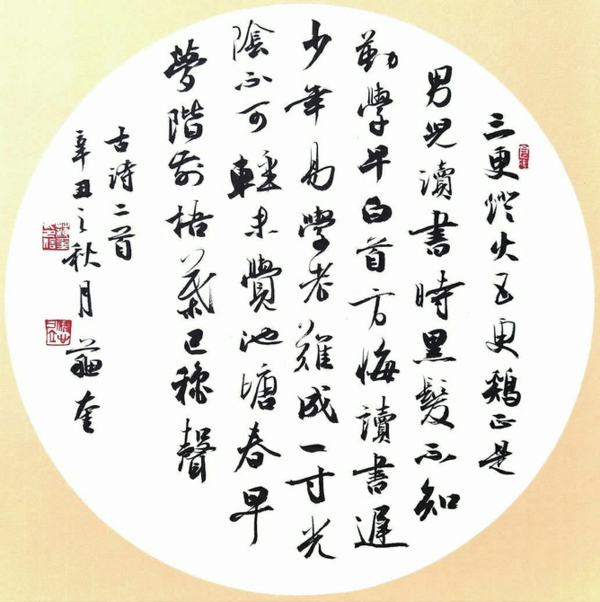 三更燈火五更鷄正是
男兒讀書時黑髮不知
勤學早白首方悔讀書遲
少年易學老難成一寸光
陰不可輕未覺池塘春早
夢階前梧葉已穐聲
古詩二首
辛丑之秋月 奎